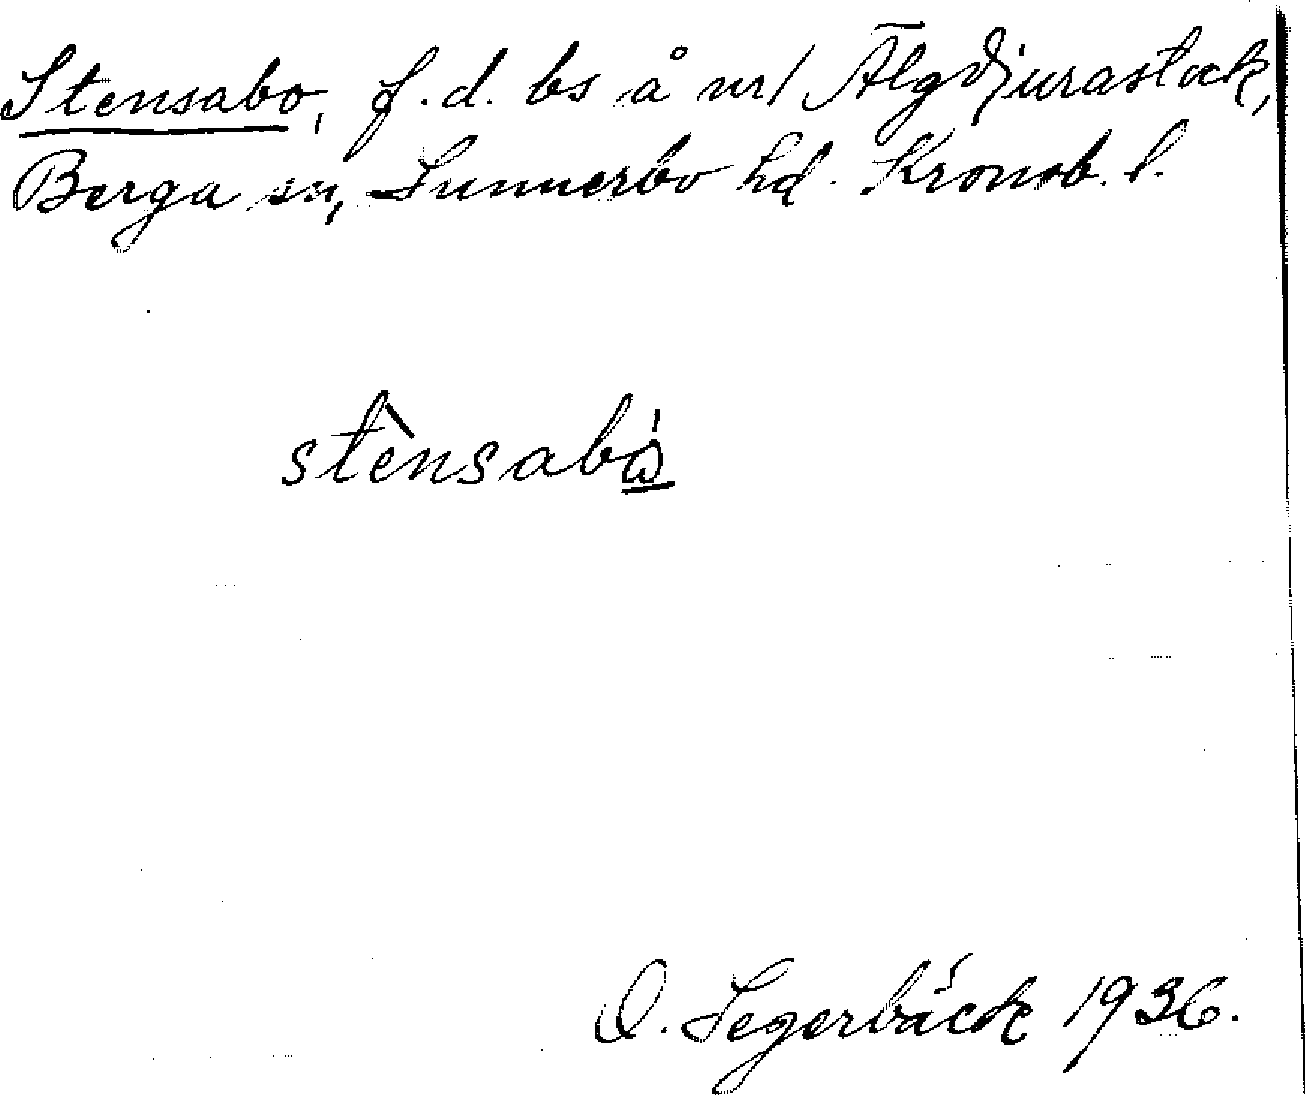 Stensabo, f.d. bs å nr 1 Älgdjurastock,
Berga sn, Sunnerbo hd. Kronob. l.
O. Segerbäck 1936.